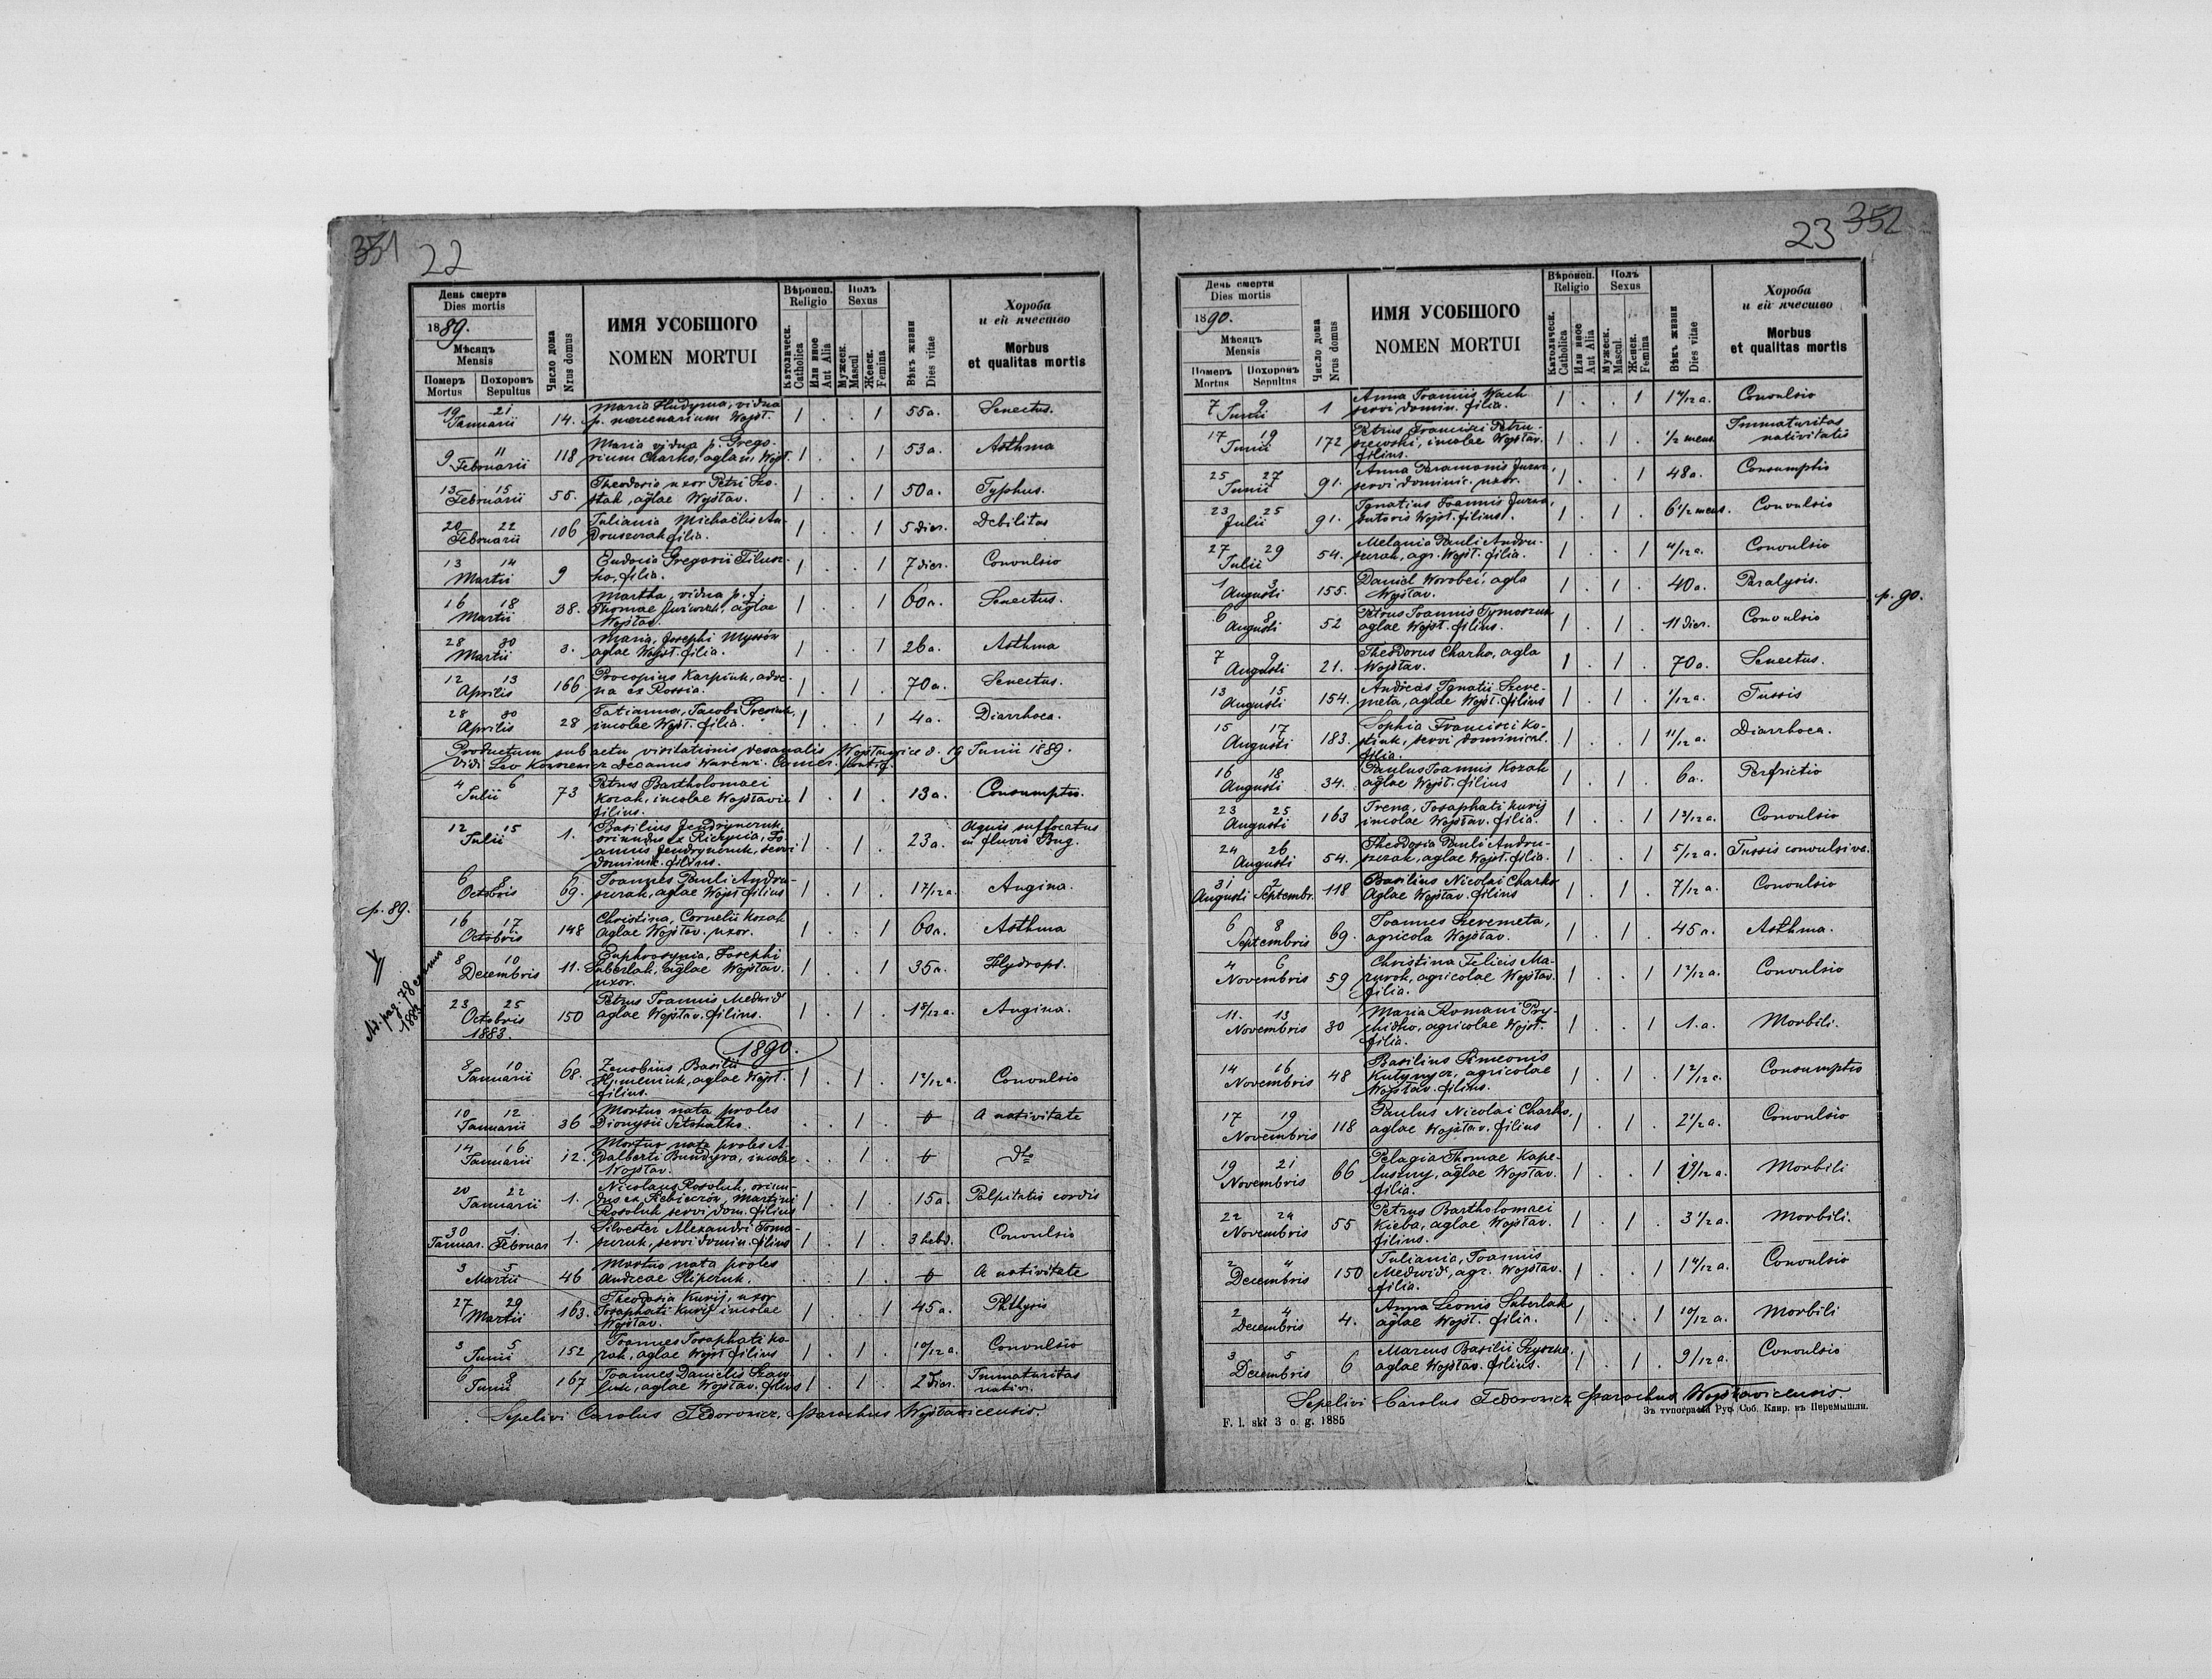 351 22
День смерти
Dies mortis
1889.
Мѣсяцъ
Mensis
Померъ Mortus
Похоронъ Sepultus
Число дома
Nrus domus
ИМЯ УСОБШОГО
NOMEN MORTUI
Вѣроисп.
Religio
Католическ.
Catholica
Или иное
Aut Alia
Полъ
Sexus
Мужеск.
Mascul
Женск.
Femina
Вѣкъ жизни
Dies vitae
Хороба
и еѣ ячество
Morbus
et qualitas mortis
19 21 Januarii 14. Maria Hudyma, vidua
p. mercenarium Wojst. 1 . . 1 55 a. Senectus.
9 11 Februarii 118 Maria vidua p. Grego-
rium Charko, aglam Wojst. 1 . . 1 53 a. Asthma
13 15 Februarii 55. Theodosia uxor Petri Szo-
stak, aglae Wojsław. 1 . . 1 50 a. Typhus.
20 22 Februarii 106 Juliania Michaëlis An-
druszczak filia. 1 . . 1 5 dier. Debilitas
13 14 Martii 9 Eudocia Gregorii
filia. 1 . . 1 7 dier. Convulsio
16 18 Martii 38. Martha, vidua p. f.
Thomae aglae
Wojsław. 1 . . 1 60 a. Senectus.
28 30 Martii 3. Maria, Josephi
aglae Wojst. filia. 1 . . 1 26 a. Asthma
12 13 Aprilis 166 Procopius Karpiuk, adve-
na ex Rossia. 1 . 1 . 70 a. Senectus.
28 30 Aprilis 28 Tatianna, Jacobi
incolae Wojst. filia. 1 . . 1 4 a. Diarrhoea.
Productum sub actu visitationis decanalis Wojsławice d. 19 Junii 1889.
Vidi Leo Decanus
4 6 Julii 73 Petrus Bartholomaei
Kozak, incolae Wojsławic
filius. 1 . 1 . 13 a. Consumptio.
12 15 Julii 1. Basilius Jendryneruk,
oriundus ex Jo-
annis Jendryneruk, servi
dominic. filius. 1 . 1 . 23 a. Aquis suffocatus
in fluvio Bug.
6 8 Octobris 69. Joannes Pauli Andru-
szczak, aglae Wojst. filius 1 . 1 . 1 7/12 a. Angina.
p. 89.
16 17 Octobris 148 Christina, Cornelii Kozak
aglae Wojsław. uxor. 1 . . 1 60 a. Asthma
8 10 Decembris 11. Euphrosynia, Josephi
Suberlak, aglae Wojsław.
uxor. 1 . . 1 35 a. Hydrops.
Ad. pag. 78
1883
23 25 Octobris 1883. 150 Petrus Joannis Medwid
aglae Wojsław. filius. 1 . 1 . 1 8/12 a. Angina.
1890.
8 10 Januarii 68. Zenobius, Basilii
aglae Wojst.
filius. 1 . 1 . 1 2/12 a. Convulsio
10 12 Januarii 36 Mortuo nata proles
Dionysii . . 1 . A nativitate
14 16 Januarii 12. Mortuo nata proles A-
dalberti Bundyra, incolae
Wojsław. . . 1 . dto
20 22 Januarii 1. Nicolaus Rosoluk, oriun-
dus ex Martini
Rosoluk servi dom. filius 1 . 1 . 15 a. Palpitatio cordis
30 1. Januar. Februar 1. Silvester Alexandri
servi domin. filius 1 . 1 . 3 hebd. Convulsio
3 5 Martii 46 Mortuo nata proles
Andreae . . 1 . A nativitate
27 29 Martii 163. Theodosia Kurij, uxor
Josaphati Kurij incolae
Wojsław. 1 . . 1 45 a. Phthysis
3 5 Junii 152 Joannes Josaphati Ko-
zak, aglae Wojst. filius 1 . 1 . 10/12 a. Convulsio
6 8 Junii 167 Joannes Danielis
aglae Wojsław. filius 1 . 1 . 2 dier. Immaturitas
nativ.
Sepelivi Carolus Fedorowicz, parochus Wojsławicensis.
23 352
День смерти
Dies mortis
1890.
Мѣсяцъ
Mensis
Померъ Mortus
Похоронъ Sepultus
Число дома
Nrus domus
ИМЯ УСОБШОГО
NOMEN MORTUI
Вѣроисп.
Religio
Католическ.
Catholica
Или иное
Aut Alia
Полъ
Sexus
Мужеск.
Mascul.
Женск.
Femina
Вѣкъ жизни
Dies vitae
Хороба
и еѣ ячество
Morbus
et qualitas mortis
7 9 Junii 1 Anna Joannis Wach
servi domin. filia. 1 . . 1 1 4/12 a. Convulsio
17 19 Junii 172 Petrus Francisci Petru-
szewski, incolae Wojsław.
filius. 1 . 1 . 1/2 mens. Immaturitas
nativitatis
25 27 Junii 91. Anna Paramonis
servi dominic. uxor. 1 . . 1 48 a. Consumptio
23 25 Julii 91. Ignatius Joannis
sutoris Wojst. filius. 1 . 1 . 6 1/2 mens. Convulsio
27 29 Julii 54. Melania Pauli Andru-
szczak, agr. Wojst. filia. 1 . . 1 4/12 a. Convulsio
1 3 Augusti 155. Daniel Worobei, agla
Wojsław. 1 . 1 . 40 a. Paralysis.
p. 90.
6 8 Augusti 52 Petrus Joannis Tymoszuk
aglae Wojst. filius. 1 . 1 . 11 dier. Convulsio
7 9 Augusti 21. Theodorus Charko, agla
Wojsław. 1 . 1 . 70 a. Senectus.
13 15 Augusti 154. Andreas Ignatii Szere-
meta, aglae Wojst. filius 1 . 1 . 1/12 a. Tussis
15 17 Augusti 183. Sophia Francisci Ko-
stiuk, servi dominical.
filia. 1 . . 1 11/12 a. Diarrhoea.
16 18 Augusti 34. Paulus Joannis Kozak
aglae Wojst. filius 1 . 1 . 6 a. Perfrictio
23 25 Augusti 163 Irena, Josaphati Kurij
incolae Wojsław. filia. 1 . . 1 1 2/12 a. Convulsio
24 26 Augusti 54. Theodosia Pauli Andru-
szczak, aglae Wojst. filia. 1 . . 1 5/12 a. Tussis convulsiva.
31 2 Augusti Septembr. 118 Basilius Nicolai Charko
aglae Wojsław. filius 1 . 1 . 7/12 a. Convulsio
6 8 Septembris 69. Joannes Szeremeta,
agricola Wojsław. 1 . 1 . 45 a. Asthma.
4 6 Novembris 59 Christina Felicis Ma-
zurok, agricolae Wojsław.
filia. 1 . . 1 1 2/12 a. Convulsio
11. 13 Novembris 30 Maria Romani Pry-
chidko, agricolae Wojst.
filia. 1 . . 1 1. a. Morbili.
14 16 Novembris 48 Basilius Simeonis
agricolae
Wojsław. filius. 1 . 1 . 1 2/12 a. Consumptio
17 19 Novembris 118 Paulus Nicolai Charko,
aglae Wojsław. filius 1 . 1 . 2 1/2 a. Convulsio
19 21 Novembris 66 Pelagia Thomae Kape-
luszny, aglae Wojsław.
filia. 1 . . 1 1 9/12 a. Morbili
22 24 Novembris 55 Petrus Bartholomaei
Kieba, aglae Wojsław.
filius. 1 . 1 . 3 1/2 a. Morbili.
2 4 Decembris 150 Juliania, Joannis
Medwid, agr. Wojsław.
filia. 1 . . 1 1 4/12 a. Convulsio
2 4 Decembris 4. Anna Leonis Suberlak
aglae Wojst. filia. 1 . . 1 10/12 a. Morbili
3 5 Decembris 6 Marcus Basilii
aglae Wojsław. filius. 1 . 1 . 9/12 a. Convulsio
Sepelivi Carolus Fedorowicz parochus Wojsławicensis.
F. l. skł 3 o. g. 1885
Зъ типографіи Рус. Соб. Клир. въ Перемышли.